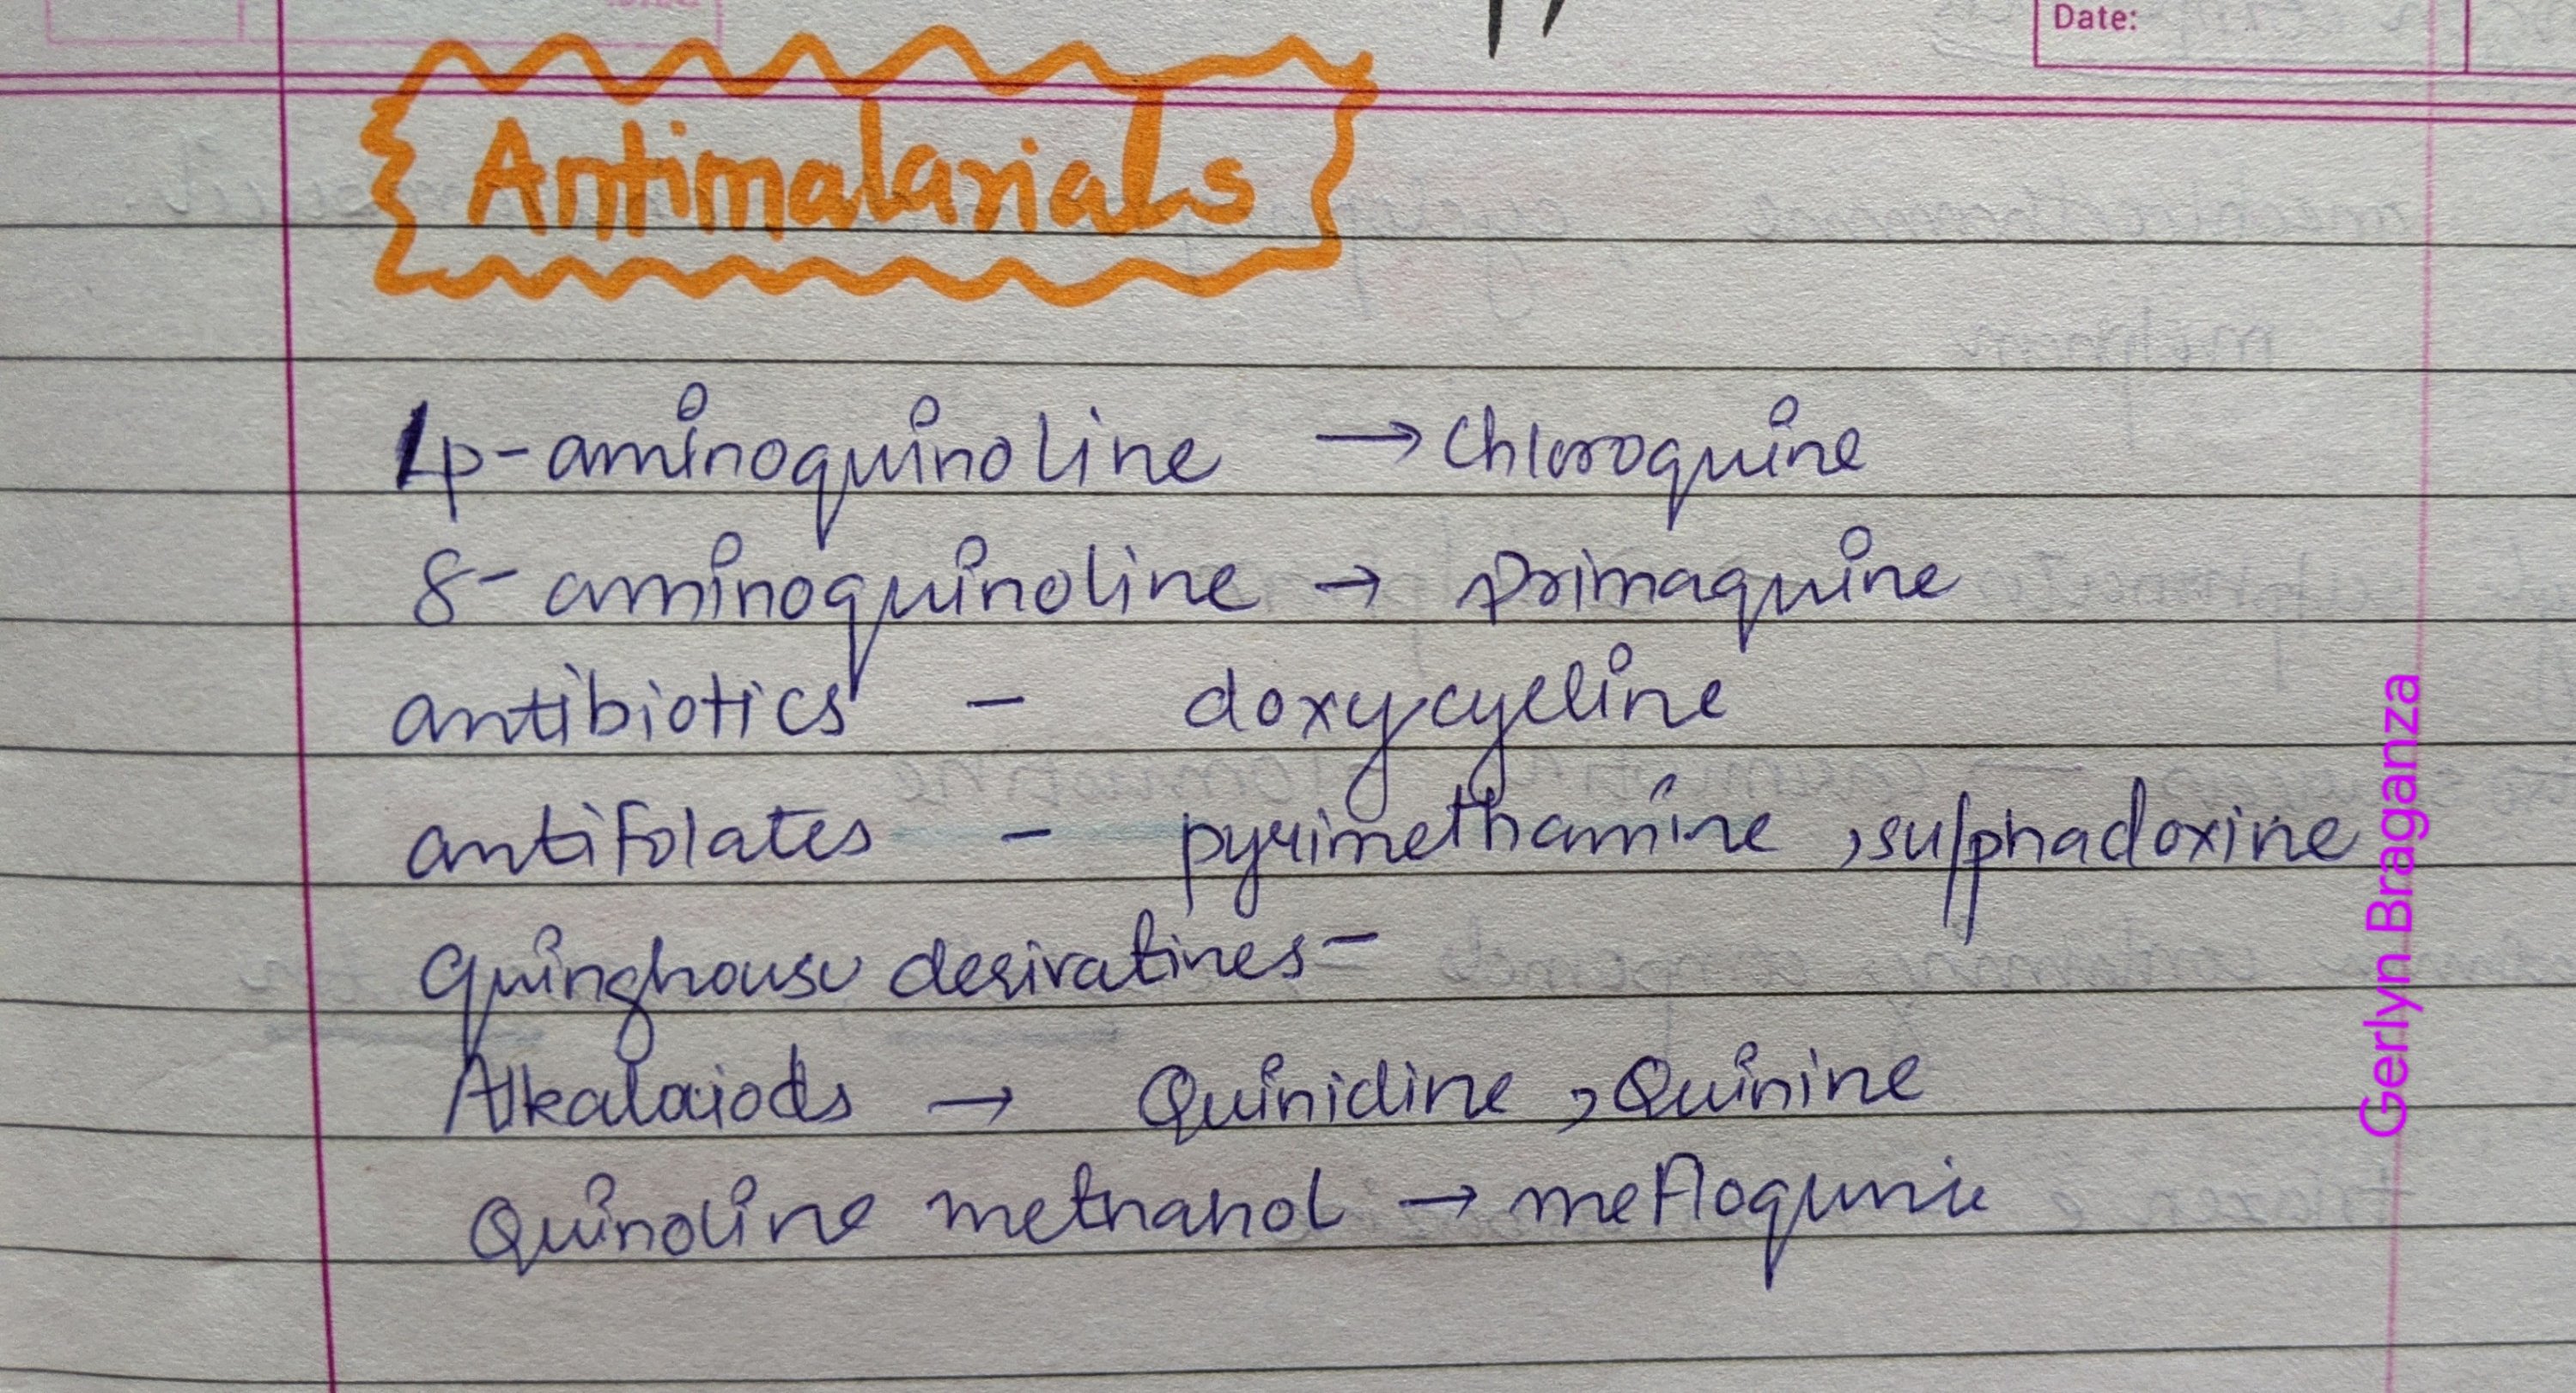 Date:
Antimalarials
4-aminoquinoline → Chloroquine
8-aminoquinoline → Primaquine
antibiotics - doxycycline
antifolates - pyrimethamine, sulphadoxine
Quinghousu derivatines-
Alkalaiods → Quinidine, Quinine
Quinoline methanol → mefloqunie
Gerlyn Braganza